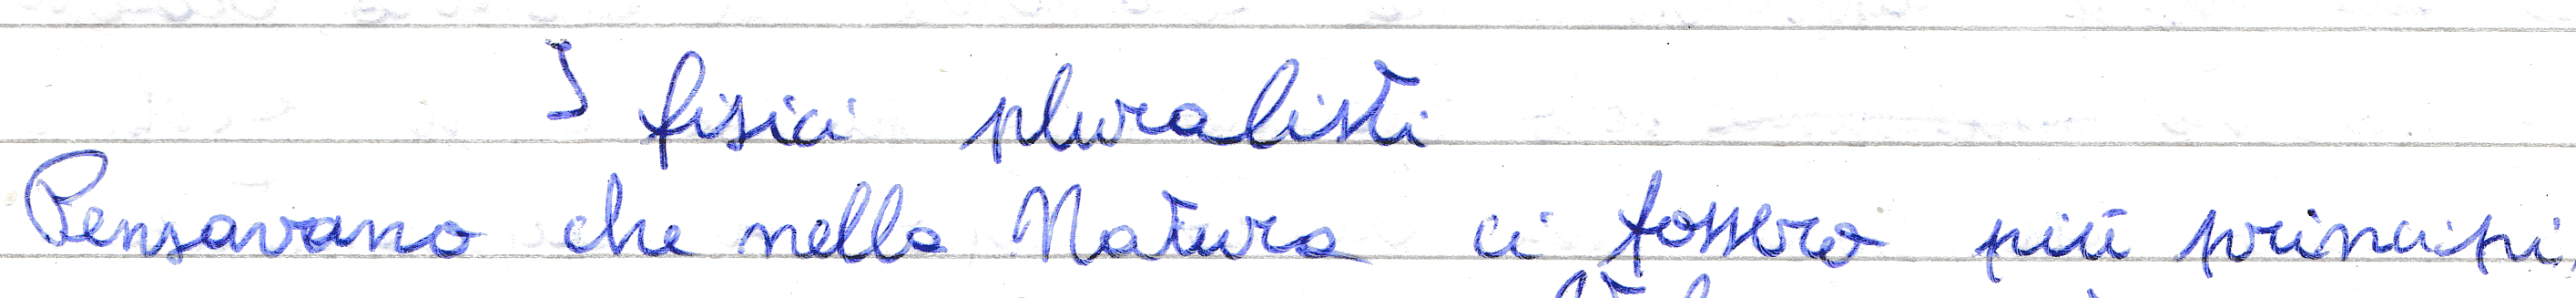 I fisici pluralisti
Pensavano che nella Natura ci fossero più principi,